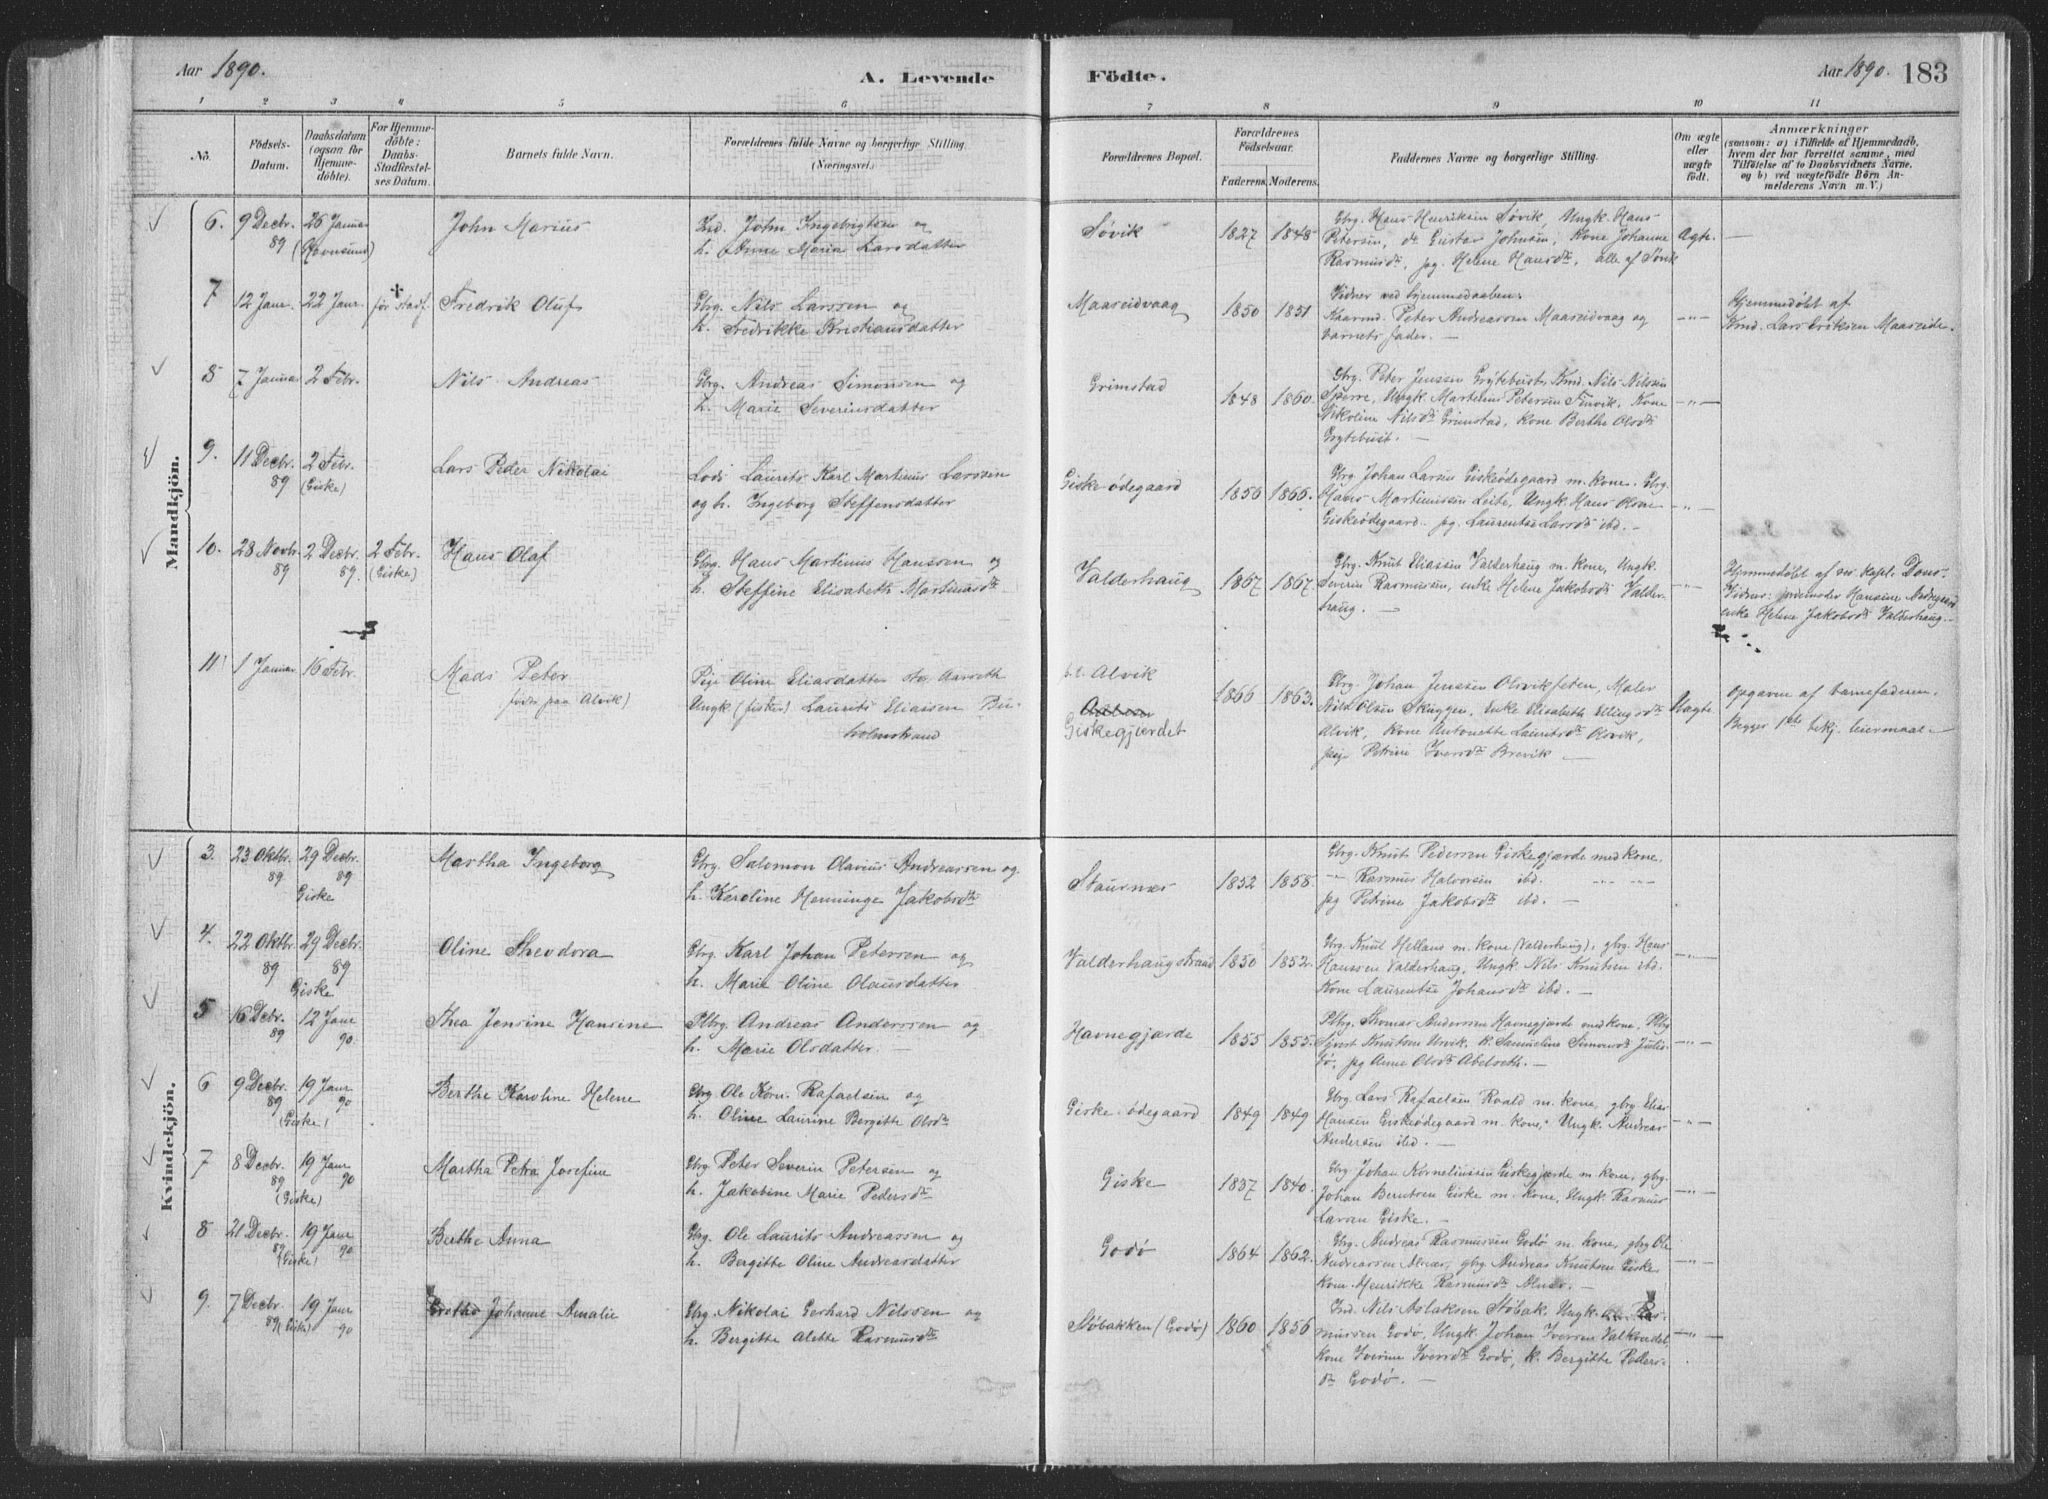 Aar 1890.
A. Levende
Födte.
Aar 1890. 183
1 2 3 4 5 6 7 8 9 10 11
No.
Födsels-Datum.
Daabsdatum (ogsaa for Hjemmedöbte).
For Hjemmedöbte: Daabs-Stadfæstelses Datum.
Barnets fulde Navn.
Forældrenes fulde Navne og borgerlige Stilling. (Næringsvei.)
Forældrenes Bopæl.
Forældrenes Födselsaar.
Faderens. Moderens.
Faddernes Navne og borgerlige Stilling.
Om ægte eller uægte födt.
Anmærkninger
(saasom: a) i Tilfælde af Hjemmedaab, hvem der har forrettet samme, med Tilföielse af to Daabsvidners Navne, og b) ved uægtefödte Börn Anmelderens Navn m. V.)
Mandkjön.
6. 9 Decbr. 89 26 Januar John Marius Ind. John Ingebrigtsen og
h. Anne Maria Larsdatter
Søvik 1827 1848 Gbrg. Hans Henriksen Søvik, Ungk. Hans
Petersen, do Gustav Johnsen, Kone Johanne
Rasmusdtr, pg. Helene Hansdtr, alle af Søvik
Ægte. —
7 12 Janr. 22 Janr. før stadf. Fredrik Oluf Gbrg. Nils Larssen og
h. Fredrikke Kristiansdatter
Maaseidvaag 1850 1851 Vidner ved hjemmedaaben:
Kaarmd. Peter Andreassen Maaseidvaag og
barnets fader. —
—"— Hjemmedøbt af
Krmd. Lars Eriksen Maaseide.
8 7 Januar 2 Febr. Nils Andreas Gbrg. Andreas Simonsen og
h. Marie Severinsdatter
Grimstad 1848 1860. Gbrg. Peter Jenssen Grytebust, Krmd. Nils Nilssen
Sperre, Ungk. Martinus Petersen, Kone
Nikoline Nilsdtr Grimstad, Kone Berthe Olsdtr
Grytebust. —
—"—
9. 11 Decbr. 89 2 Febr. (Giske) Lars Peder Nikolai Lods Laurits Karl Martinus Larssen
og h. Ingeborg Steffensdatter
Giske ødegaard 1856 1866. Gbrg. Johan Larsen Giskeødegaard m. kone. Gbrg.
Hans Martinussen Leite, Ungk. Hans Olsen
Giskeødegaard. pg. Laurentse Larsdtr ibd. —
—"—
10. 28 Novbr. 89 2 Decbr. 89. 2 Febr. (Giske) Hans Olaf Gbrg. Hans Martinus Hanssen og
h. Steffine Elisabeth Martinusdtr
Valderhaug 1867 1867. Gbrg. Knut Eliassen Valderhaug m. kone, Ungk.
Severin Rasmussen, enke Helene Jakobsdtr Valder-
haug. —
—"— Hjemmedøbt af res. kapl. Dons.
Vidner: jordemoder Hansine
enke Helene Jakobsdtr Valderhaug.
11 1 Januar 16 Febr. Mads Peter
(født paa Alvik)
Pige Oline Eliasdatter Aarseth
Ungk (fisker) Laurits Eliassen Bu-
holmstrand
p.t. Alvik
Giskegjærdet
1866 1863. Gbrg. Johan Jenssen Olsvikfeten, Maler
Nils Olsen Skuggen, Enke Elisabeth Ellingsdtr
Alvik, Kone Antonette Lauritsdtr Olsvik,
pige Petrine Iversdtr Brevik —
Uægte. opgaven af barnefaderen.
Begges 1ste bekj. leiermaal.
Kvindekjön.
3. 23 Oktbr. 89 29 Decbr. 89 Giske Martha Ingeborg Gbrg. Salomon Olavius Andreassen og
h. Karoline Henninge Jakobsdtr
Staurnes 1852 1858. Gbrg. Knut Pedersen Giskegjærde med kone.
—"— Rasmus Halvorsen ibd. —"— —"—
pg Petrine Jakobsdtr ibd. —
4. 22 Oktbr. 89 29 Decbr. 89 Giske Oline Theodora Gbrg. Karl Johan Petersen og
h. Marie Oline Olausdatter
Valderhaugstrand 1850 1852. Gbrg. Knut Hellans m. kone (Valderhaug), gbrg. Hans
Hanssen Valderhaug, Ungk. Nils Knutsen ibd.
Kone Laurentse Johansdtr ibd. —
—"—
5 16 Decbr. 89 12 Janr 90. Thea Jensine Hansine Plbrg. Andreas Anderssen og
h. Marie Olsdatter.
Havnegjærde 1855 1855. Plbrg. Thomas Anderssen Havnegjærde med kone. Plbrg
Sivert Knutsen Urvik. k. Samueline Simonsdtr Julis-
bø, pg Anne Olsdtr Abelseth. —
—"—
6 9 Decbr. 89 19 Janr 90 (Giske) Berthe Karoline Helene Gbrg Ole Korn. Rafaelsen og
h. Oline Laurine Bergitte Olsdtr
Giske-ødegaard 1849 1849 Gbrg. Lars Rafaelsen Roald m. kone, gbrg Elias
Hansen Giskeødegaard m. kone, Ungk. Andreas
Andersen ibd. —
—"—
7 8 Decbr. 89 19 Janr 90 (Giske) Martha Petra Josefine Gbrg Peter Severin Petersen og
h. Jakobine Marie Pedersdtr
Giske 1837 1840. Gbrg Johan Korneliussen Giskegjærde m kone, gbrg.
Johan Berntsen Giske m. kone, Ungk. Rasmus
Larsen Giske. —
—"—
8 21 Decbr. 89 19 Janr 90 (Giske) Berthe Anna Gbrg. Ole Laurits Andreassen og
h. Bergitte Oline Andreasdatter
Godø 1864 1862. Gbrg. Andreas Rasmussen Godø m. kone, gbrg Ole
Andreassen Alnæs, gbrg Andreas Knutsen Giske
Kone Henrikke Rasmusdtr Alnæs. —
—"—
9. 7 Decbr. 89 (Giske) 19 Janr 90 Grethe Johanne Amalie Gbrg. Nikolai Gerhard Nilssen og
h. Bergitte Alette Rasmusdtr
Støbakken (Godø) 1860 1856 Ind. Nils Aslaksen Støbak. Ungk. Ole Ras-
mussen Godø, Ungk. Johan Iversen Valkvedel,
kone Iverine Iversdtr Godø, k. Bergitte Peders-
dtr Godø. —
—"—